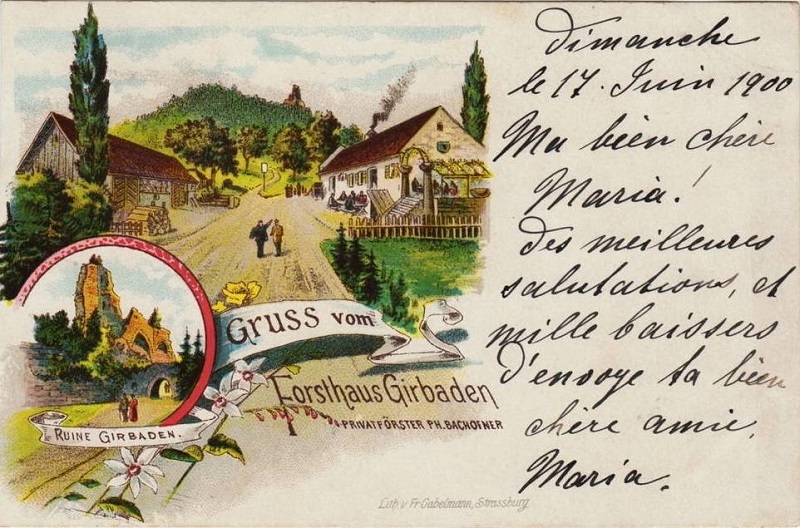 Dimanche
le 17. Juin 1900
Ma bien chère
Maria!
des meilleures
salutations, et
mille baissers
d'envoye ta bien
chère amie,
Maria.
Gruss vom
Forsthaus Girbaden
PRIVATFÖRSTER PH. BACHOFNER
RUINE GIRBADEN.
Lith. v Fr. Gabelmann, Strassburg